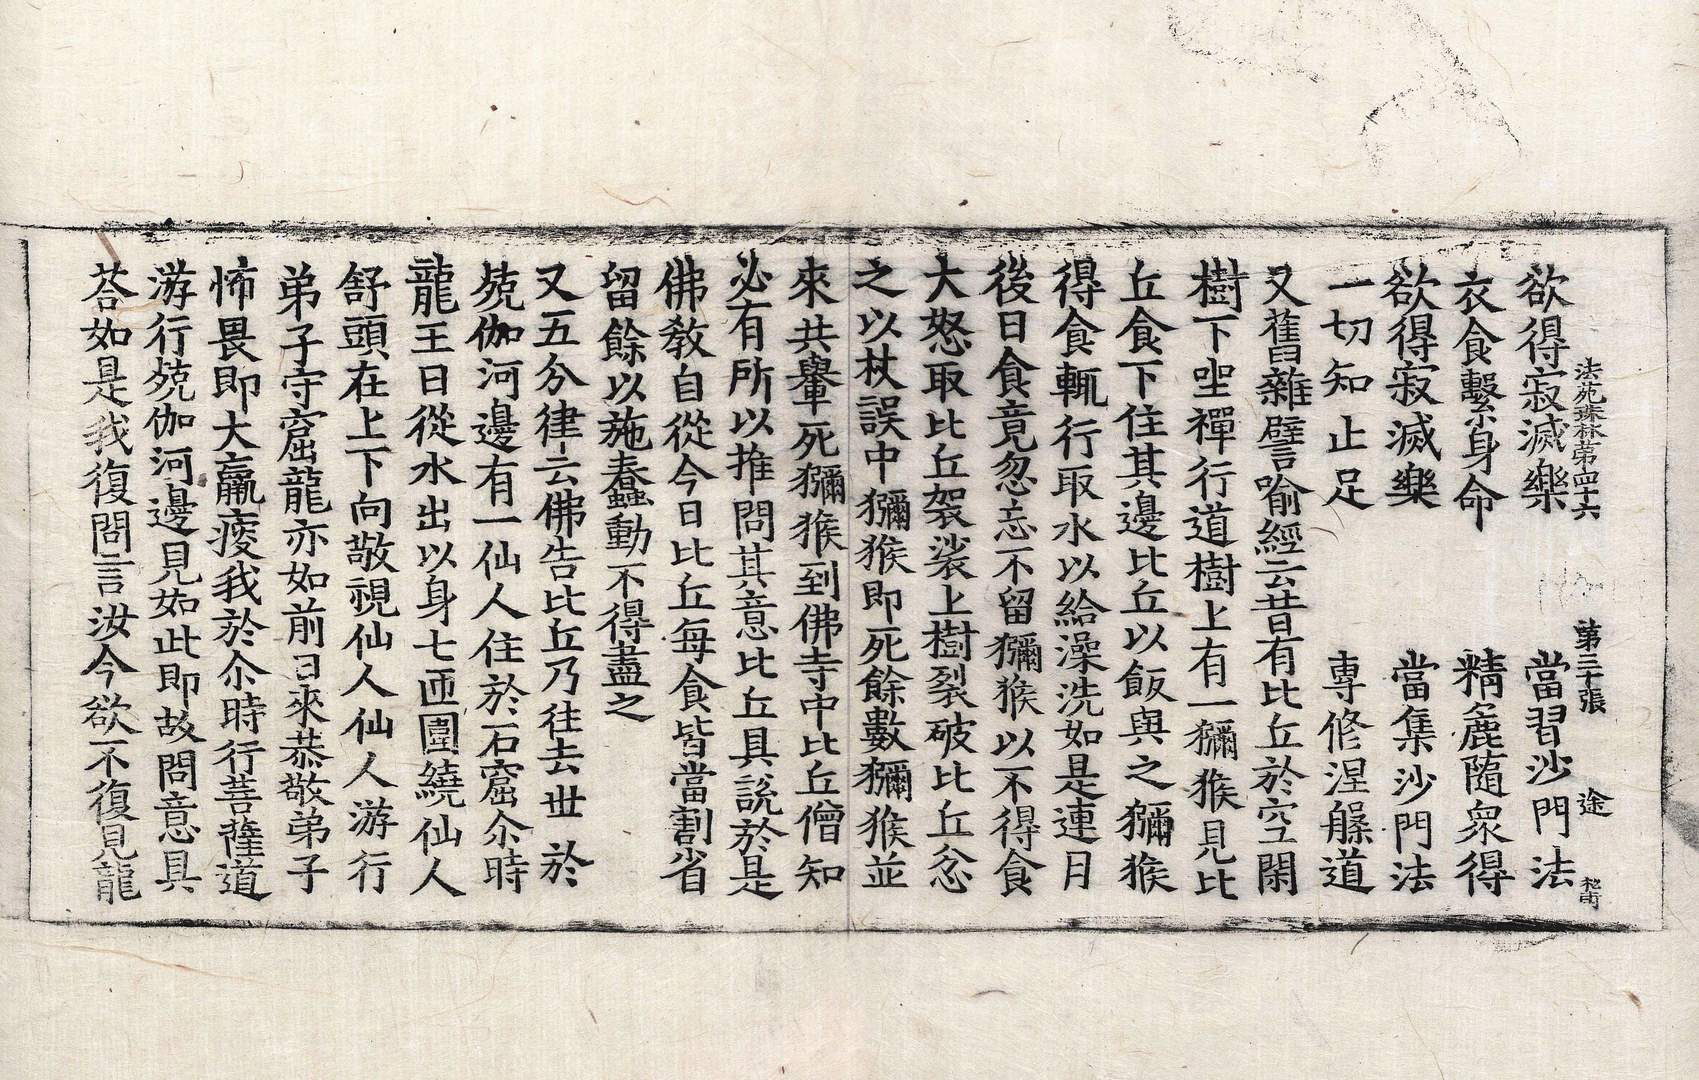 法苑珠林第四十六 第三十張 途
欲得寂滅樂 當習沙門法
衣食繫身命 精麁隨衆得
欲得寂滅樂 當集沙門法
一切知止足 專修涅槃道
又舊雜譬喻經云昔有比丘於空閑
樹下坐禪行道樹上有一獼猴見比
丘食下住其邊比丘以飯與之獼猴
得食輒行取水以給澡洗如是連月
後日食竟忽忘不留獼猴以不得食
大怒取比丘袈裟上樹裂破比丘忿
之以杖誤中獼猴即死餘數獼猴並
來共轝死獼猴到佛寺中比丘僧知
必有所以推問其意比丘具說於是
佛教自從今日比丘每食皆當割省
留餘以施蠢動不得盡之
又五分律云佛告比丘乃往去世於
兢伽河邊有一仙人住於石窟尒時
龍王日從水出以身七匝圍繞仙人
舒頭在上下向敬視仙人仙人游行
弟子守窟龍亦如前日來恭敬弟子
怖畏即大羸痩我於尒時行菩薩道
游行兢伽河邊見如此即故問意具
荅如是我復問言汝今欲不復見龍